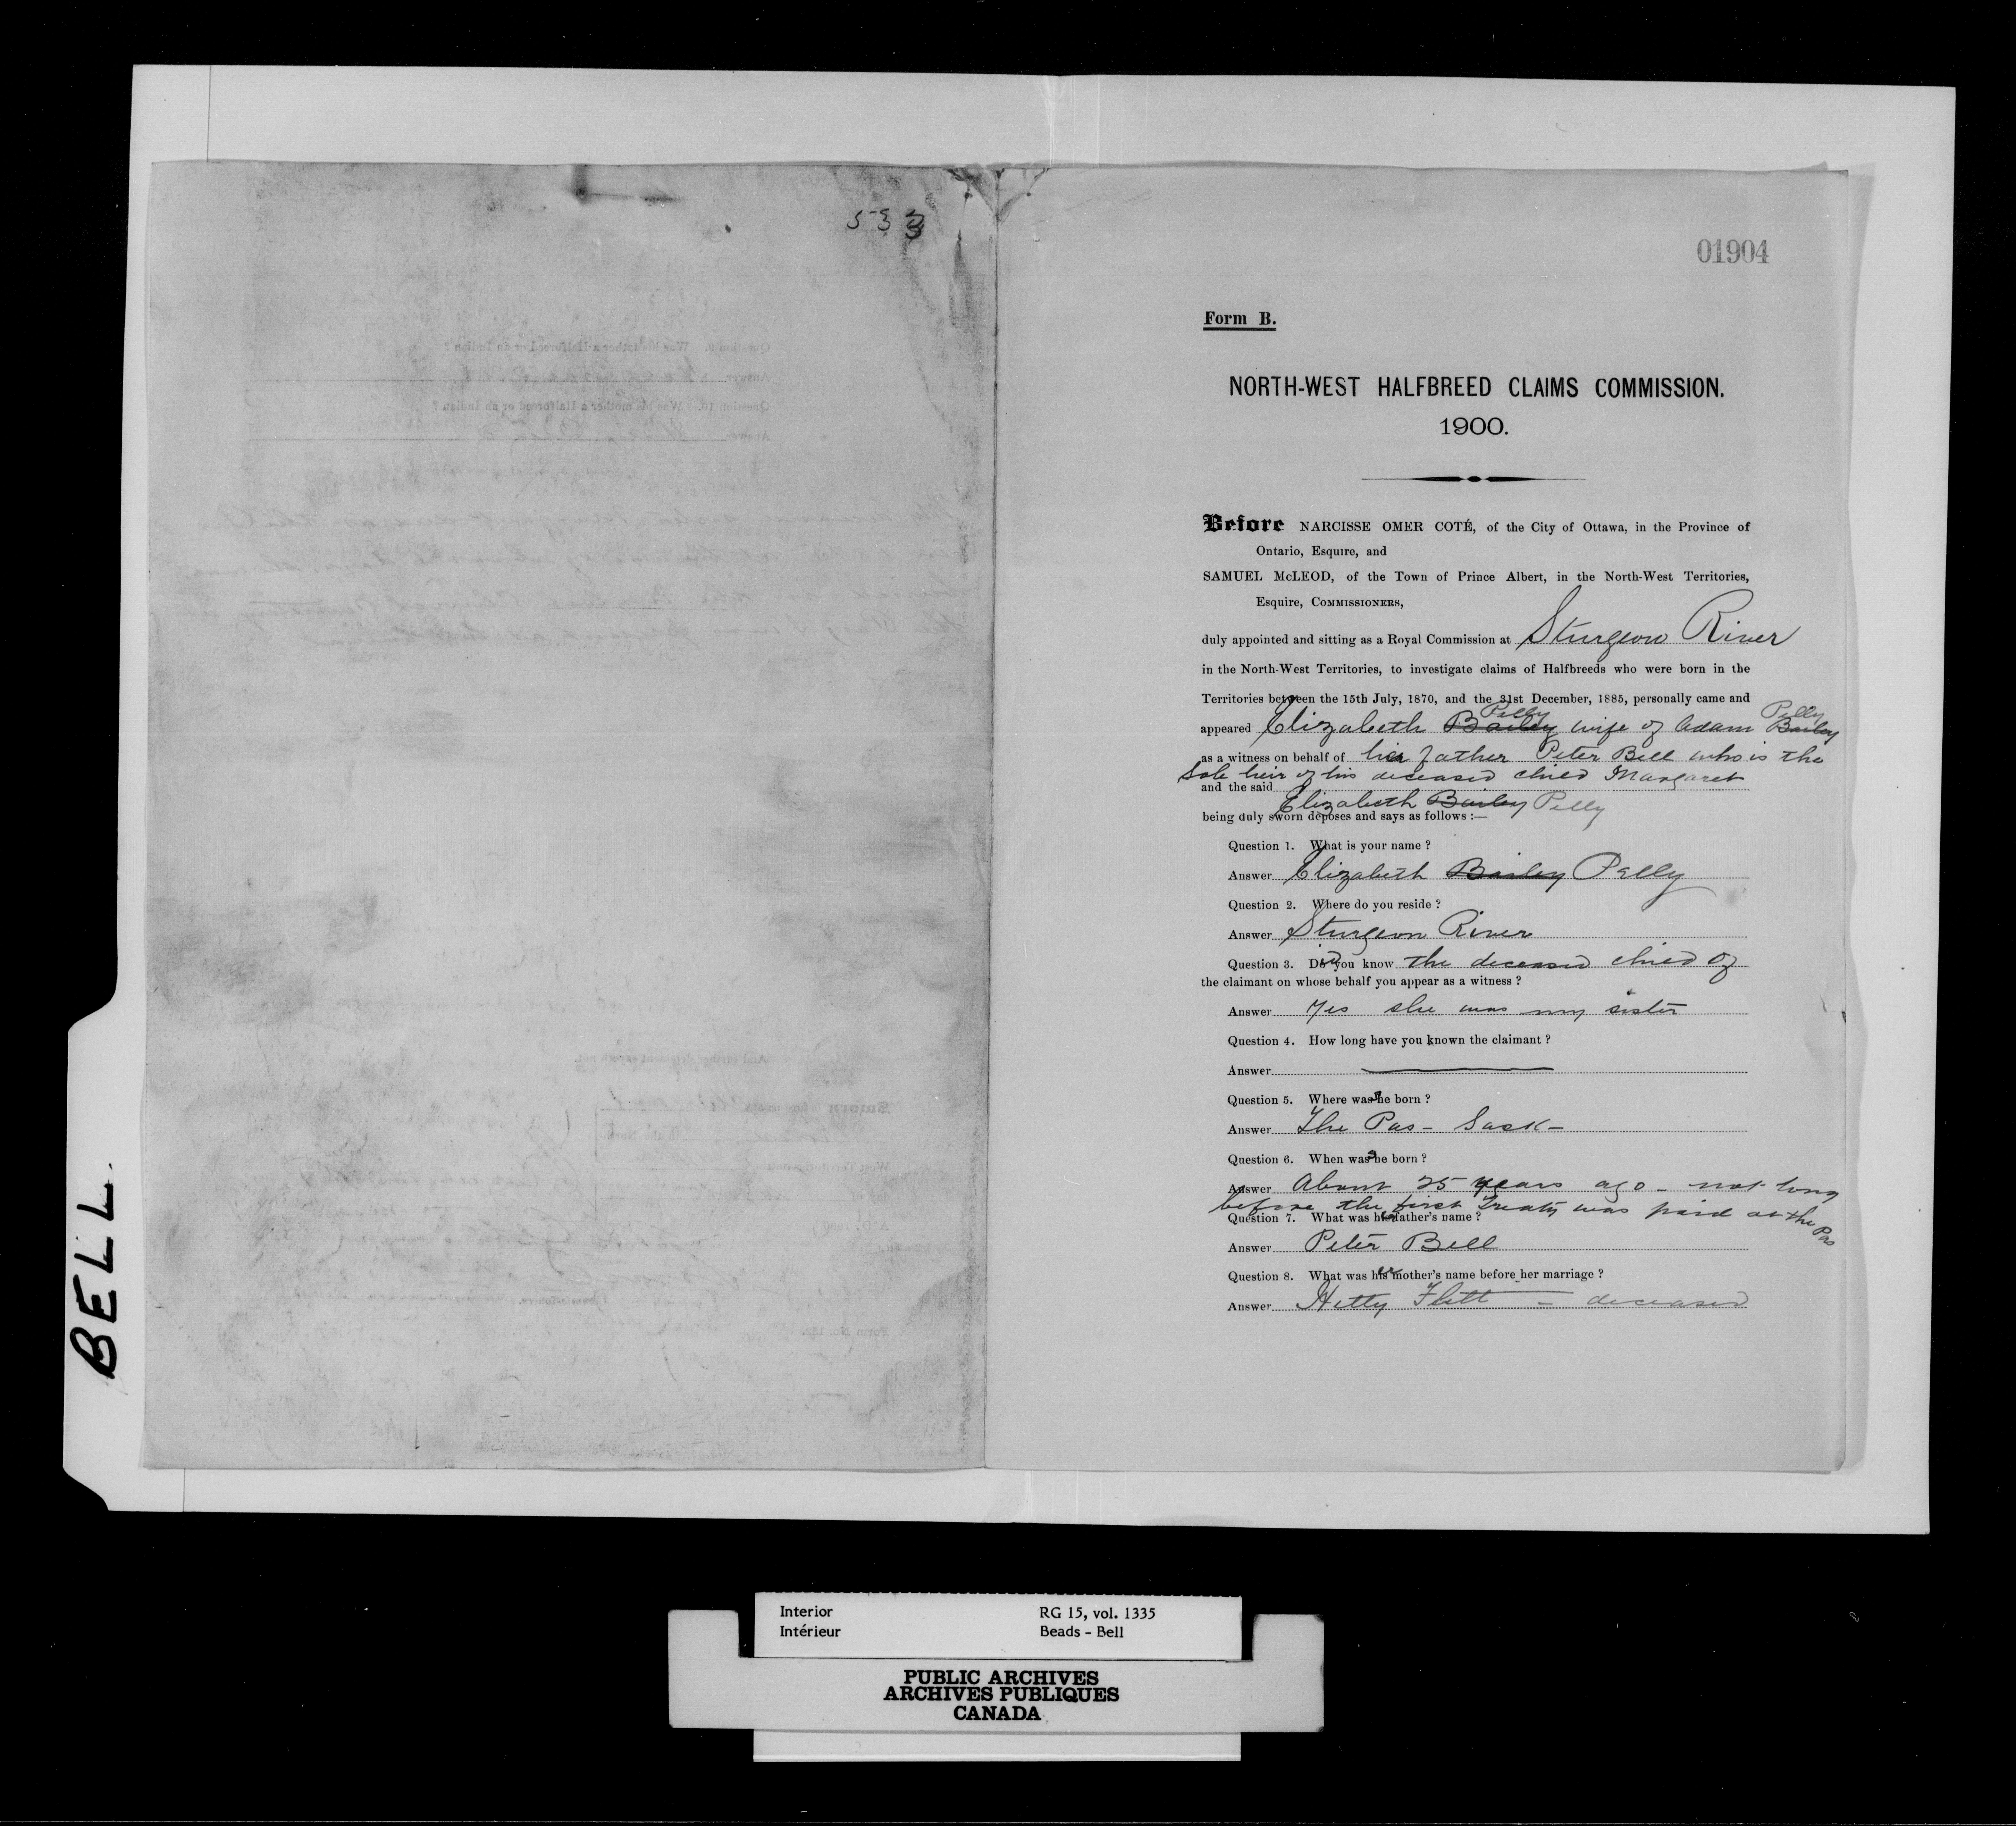 533
BELL.
01904
Form B.
NORTH-WEST HALFBREED CLAIMS COMMISSION.
1900.
Before NARCISSE OMER COTÉ, of the City of Ottawa, in the Province of
Ontario, Esquire, and
SAMUEL McLEOD, of the Town of Prince Albert, in the North-West Territories,
Esquire, COMMISSIONERS,
duly appointed and sitting as a Royal Commission at Sturgeon River
in the North-West Territories, to investigate claims of Halfbreeds who were born in the
Territories between the 15th July, 1870, and the 31st December, 1885, personally came and
Pelly Pelly
appeared Elizabeth Bailey wife of Adam Bailey
as a witness on behalf of her father Peter Bell who is the
sole heir of his deceased child Margaret
and the said
Elizabeth Bailey Pelly
being duly sworn deposes and says as follows :—
Question 1. What is your name ?
Answer Elizabeth Bailey Pelly
Question 2. Where do you reside ?
Answer Sturgeon River
Question 3. Did you know the deceased child of
the claimant on whose behalf you appear as a witness ?
Answer Yes she was my sister
Question 4. How long have you known the claimant ?
Answer
Question 5. Where was she born ?
Answer The Pas - Sask -
Question 6. When was she born ?
Answer About 25 years ago - not long
before the first Treaty was paid at the Pas
Question 7. What was her father's name ?
Answer Peter Bell
Question 8. What was her mother's name before her marriage ?
Answer Hetty Flett - deceased
Interior RG 15, vol. 1335
Intérieur Beads - Bell
PUBLIC ARCHIVES
ARCHIVES PUBLIQUES
CANADA